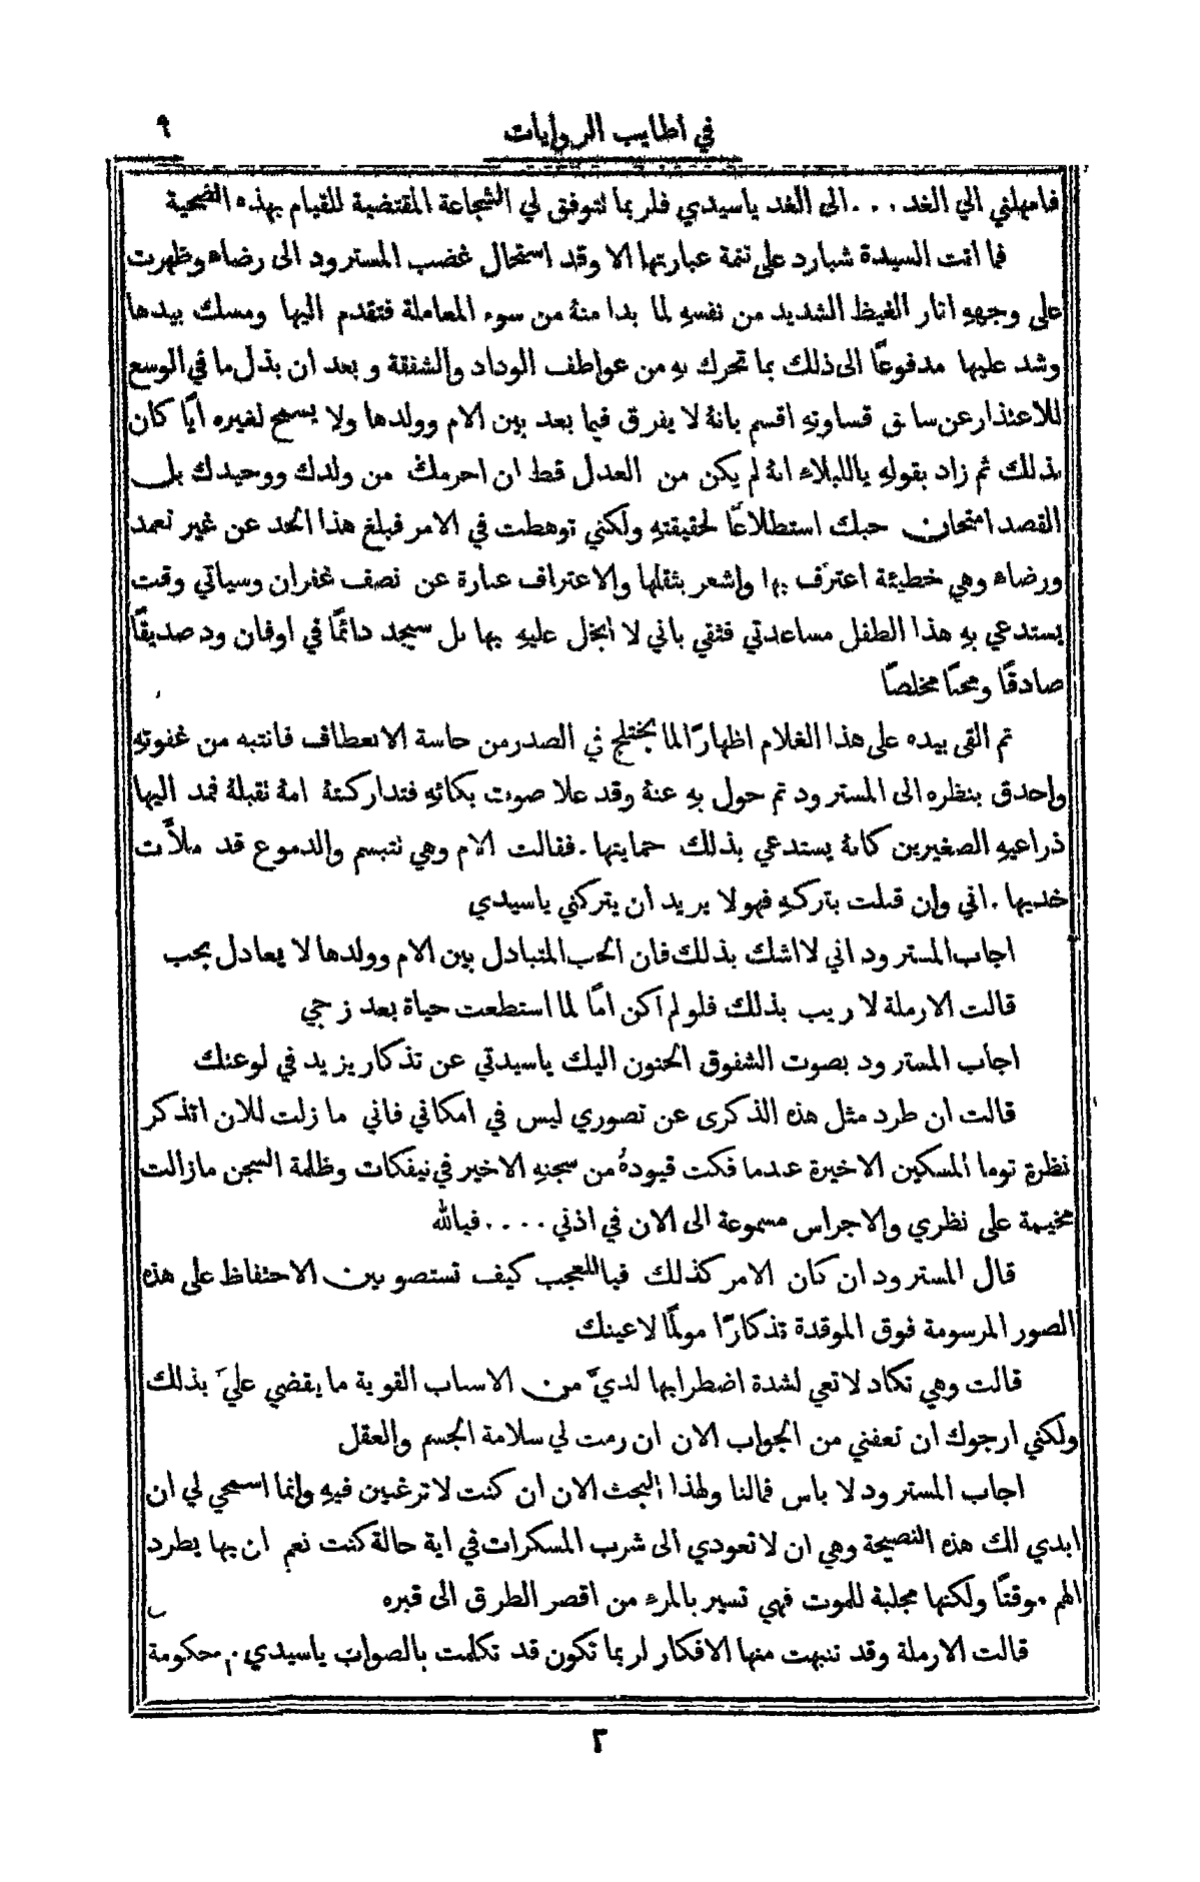 في اطايب الروايات
٩
فامهلني الى الغد . . . الى الغد ياسيدي فلربما تتوفق لي الشجاعة المقتضية للقيام بهذه الضحية
فما اتت السيدة شبارد على تتمة عبارتها الا وقد استحال غضب المسترود الى رضاه وظهرت
على وجههِ اثار الغيظ الشديد من نفسهِ لما بدا منهُ من سوء المعاملة فتقدم اليها ومسك بيدها
وشد عليها مدفوعًا الى ذلك بما تحرك بهِ من عواطف الوداد والشفقة وبعد ان بذل ما في الوسع
للاعتذار عن سابق قساوتهِ اقسم بانهُ لا يفرق فيما بعد بين الام وولدها ولا يسمح لغيره ايًا كان
بذلك ثم زاد بقولهِ ياللبلاء انهُ لم يكن من العدل قط ان احرمك من ولدك ووحيدك بل
القصد امتحان حبك استطلاعًا لحقيقتهِ ولكني توهطت في الامر فبلغ هذا الحد عن غير تعمد
ورضاه وهي خطيئة اعترف بها واشعر بثقلها والاعتراف عبارة عن نصف غفران وسياتي وقت
يستدعي بهِ هذا الطفل مساعدتي فثقي باني لا ابخل عليهِ بها بل سيجد دائمًا في اوفان ود صديقًا
صادقًا ومحبًا مخلصًا
ثم القى بيده على هذا الغلام اظهارًا لما يختلج في الصدر من حاسة الانعطاف فانتبه من غفوتهِ
واحدق بنظره الى المسترود ثم حول بهِ عنهُ وقد علا صوت بكائهِ فتداركتهُ امهُ بقبلة فمد اليها
ذراعيهِ الصغيرين كانهُ يستدعي بذلك حمايتها . فقالت الام وهي تتبسم والدموع قد ملأَت
خديها . اني وان قبلت بتركهِ فهو لا يريد ان يتركني ياسيدي
اجاب المسترود اني لا اشك بذلك فان الحب المتبادل بين الام وولدها لا يعادل بحب
قالت الارملة لا ريب بذلك فلو لم اكن امًا لما استطعت حياة بعد زجي
اجاب المسترود بصوت الشفوق الحنون اليك ياسيدتي عن تذكار يزيد في لوعتك
قالت ان طرد مثل هذه الذكرى عن تصوري ليس في امكاني فاني ما زلت للان اتذكر
نظرة توما المسكين الاخيرة عندما فكت قيودهُ من سجنهِ الاخير في نيفكات وظلمة السجن مازالت
مخيمة على نظري والاجراس مسموعة الى الان في اذني . . . . فيالله
قال المسترود ان كان الامر كذلك فياللعجب كيف تستصوبين الاحتفاظ على هذه
الصور المرسومة فوق الموقدة تذكارًا مولمًا لاعينك
قالت وهي تكاد لا تعي لشدة اضطرابها لديَّ من الاسباب القوية ما يقضي عليَّ بذلك
ولكني ارجوك ان تعفني من الجواب الان ان رمت لي سلامة الجسم والعقل
اجاب المسترود لا باس فمالنا ولهذا البحث الان ان كنت لا ترغبين فيهِ وانما اسمحي لي ان
ابدي لك هذه النصيحة وهي ان لا تعودي الى شرب المسكرات في اية حالة كنت نعم ان بها يطرد
الهم موقتًا ولكنها مجلبة للموت فهي تسير بالمرء من اقصر الطرق الى قبره
قالت الارملة وقد تنبهت منها الافكار لربما تكون قد تكلمت بالصواب ياسيدي . محكومة
٢